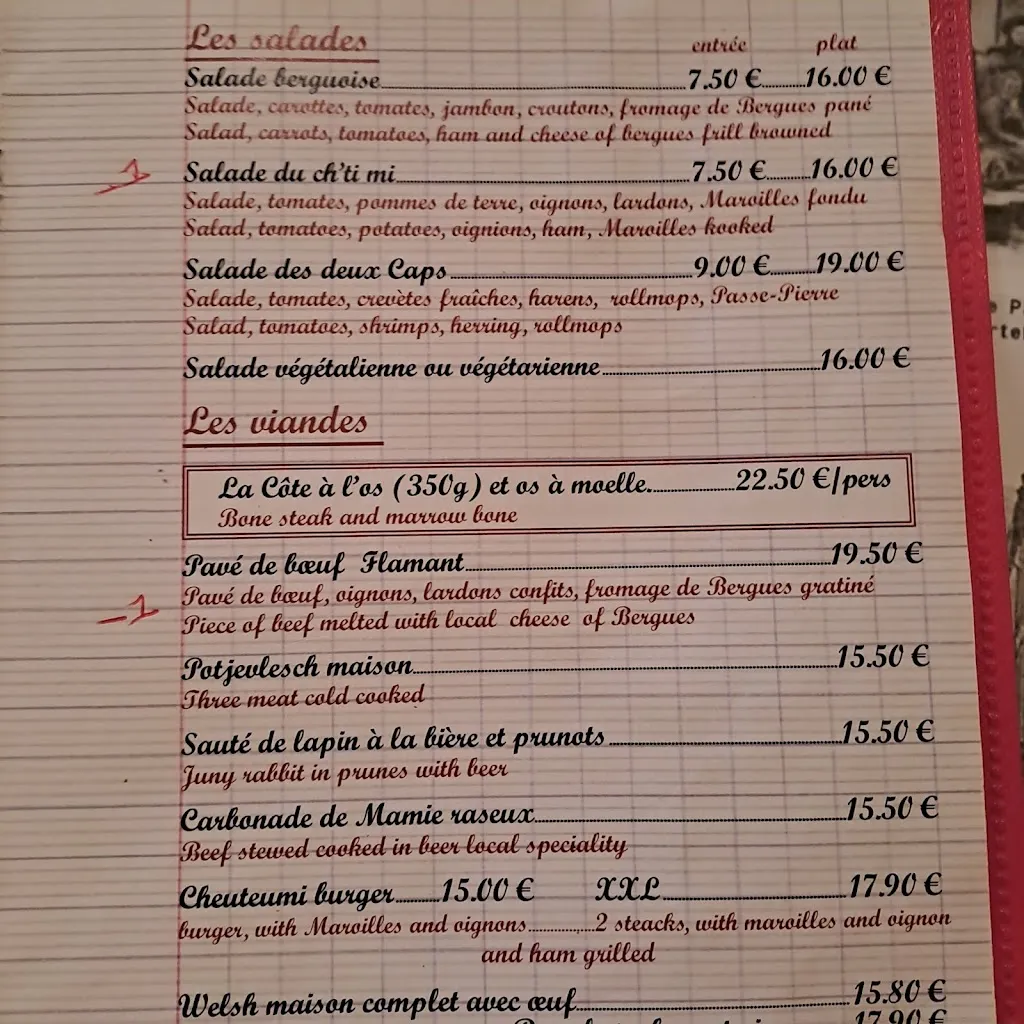 Les salades entrée plat
Salade berguoise 7.50 € 16.00 €
Salade, carottes, tomates, jambon, croutons, fromage de Bergues pané
Salad, carrots, tomatoes, ham and cheese of bergues frill browned
1 Salade du ch'ti mi 7.50 € 16.00 €
Salade, tomates, pommes de terre, oignons, lardons, Maroilles fondu
Salad, tomatoes, potatoes, oignions, ham, Maroilles kooked
Salade des deux Caps 9.00 € 19.00 €
Salade, tomates, crevètes fraîches, harens, rollmops, Passe-Pierre
Salad, tomatoes, shrimps, herring, rollmops
Salade végétalienne ou végétarienne 16.00 €
Les viandes
La Côte à l'os (350g) et os à moelle 22.50 €/pers
Bone steak and marrow bone
Pavé de bœuf Flamant 19.50 €
Pavé de bœuf, oignons, lardons confits, fromage de Bergues gratiné
1 Piece of beef melted with local cheese of Bergues
Potjevlesch maison 15.50 €
Three meat cold cooked
Sauté de lapin à la bière et prunots 15.50 €
Juny rabbit in prunes with beer
Carbonade de Mamie raseux 15.50 €
Beef stewed cooked in beer local speciality
Cheuteumi burger 15.00 € XXL 17.90 €
burger, with Maroilles and oignons 2 steacks, with maroilles and oignon
and ham grilled
Welsh maison complet avec œuf 15.80 €
17.90 €